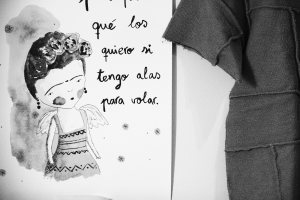 qué los
quiero si
tengo alas
para volar.